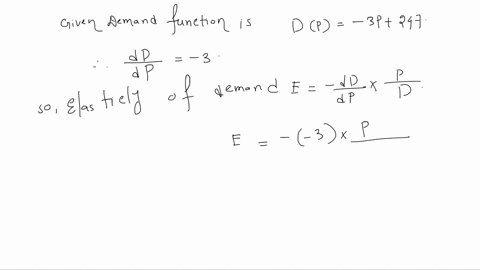 Given Demand function is D(P) = -3P + 247.
∴ dD/dP = -3.
so, Elastiely of demand E = -dD/dP × P/D.
E = -(-3) × P/